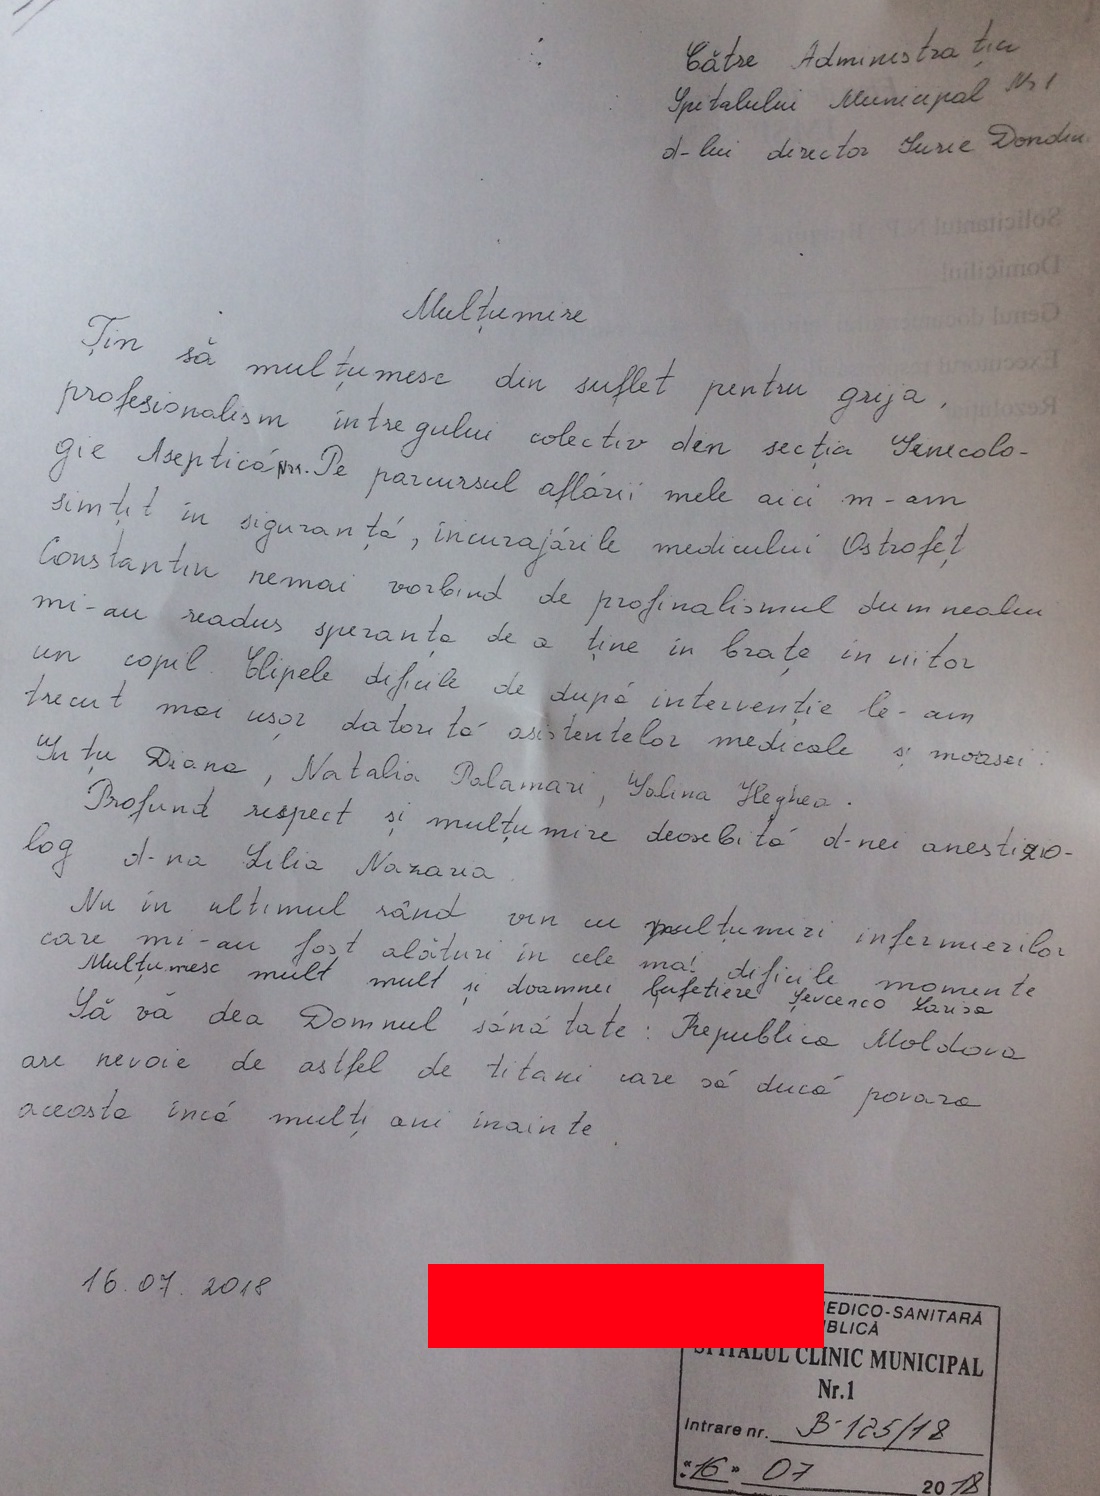 Către Administrația
Spitalului Municipal Nr 1
d-lui director Iurie Dondiu
Mulțumire
Țin să mulțumesc din suflet pentru grija,
profesionalism întregului colectiv den secția Genecolo-
gie Aseptică. Pe parcursul aflării mele aici m-am
simțit în siguranță, încurajările medicului Ostrofeț
Constantin nemai vorbind de profinalismul dumnealui
mi-au readus speranța de a ține în brațe în viitor
un copil. Clipele dificile de după intervenție le-am
trecut mai ușor datorită asistentelor medicale și moașei:
Diana, Natalia Palamari, Galina Heghea.
Profund respect și mulțumire deosebită d-nei anestizio-
log d-na Lilia Nazaria
Nu în ultimul rând vin cu mulțumiri infermierilor
care mi-au fost alături în cele mai dificile momente
Mulțumesc mult mult și doamnei bufetiere Șevcenco Larisa
Să vă dea Domnul sănătate: Republica Moldova
are nevoie de astfel de titani care să ducă povara
aceasta încă mulți ani înainte.
16.07.2018
EDICO-SANITARĂ
BLICĂ
SPITALUL CLINIC MUNICIPAL
Nr.1
Intrare nr. B-125/18
«16» 07 2018
Solicitantul
Domiciliul
Genul documentului
Executorul
Rezoluția